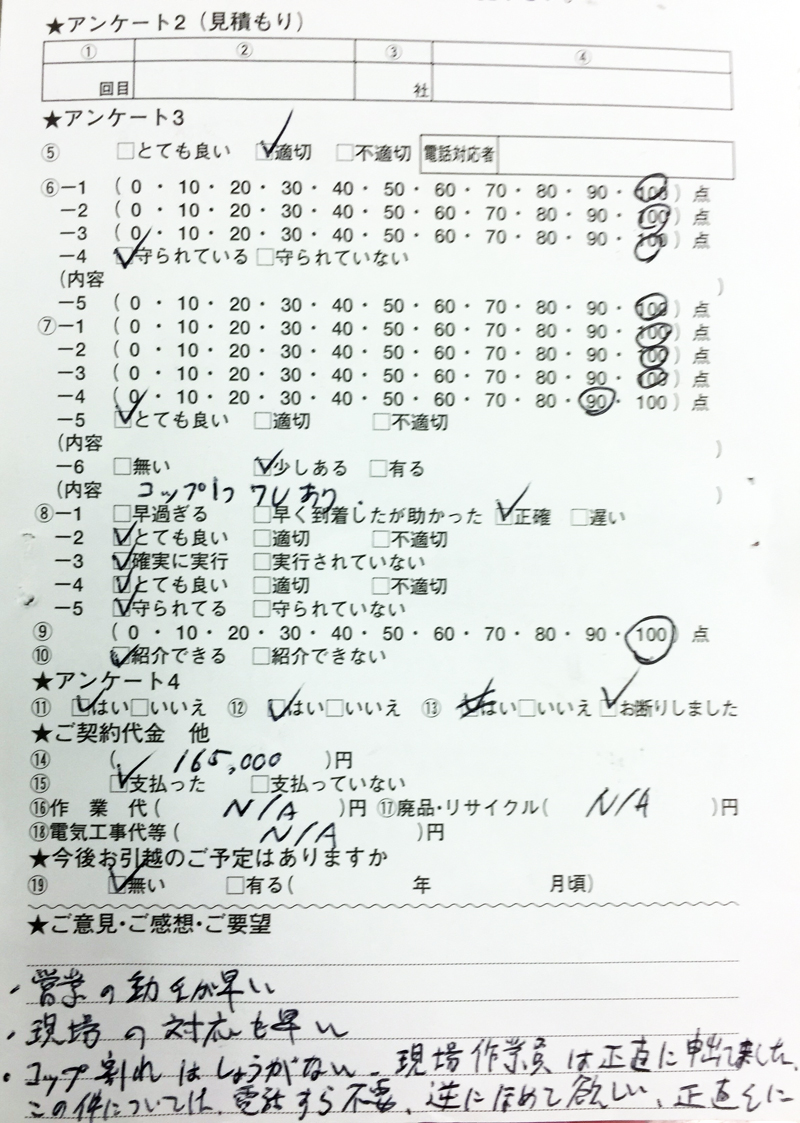 ★アンケート2(見積もり)
① ② ③ ④
回目 社
★アンケート3
⑤ □とても良い ☑適切 □不適切 電話対応者
⑥−1 (0・10・20・30・40・50・60・70・80・90・100)点
−2 (0・10・20・30・40・50・60・70・80・90・100)点
−3 (0・10・20・30・40・50・60・70・80・90・100)点
−4 ☑守られている □守られていない
(内容 )
−5 (0・10・20・30・40・50・60・70・80・90・100)点
⑦−1 (0・10・20・30・40・50・60・70・80・90・100)点
−2 (0・10・20・30・40・50・60・70・80・90・100)点
−3 (0・10・20・30・40・50・60・70・80・90・100)点
−4 (0・10・20・30・40・50・60・70・80・90・100)点
−5 ☑とても良い □適切 □不適切
(内容 )
−6 □無い ☑少しある □有る
(内容 コップ1つ ワレあり. )
⑧−1 □早過ぎる □早く到着したが助かった ☑正確 □遅い
−2 ☑とても良い □適切 □不適切
−3 ☑確実に実行 □実行されていない
−4 ☑とても良い □適切 □不適切
−5 ☑守られてる □守られていない
⑨ (0・10・20・30・40・50・60・70・80・90・100)点
⑩ ☑紹介できる □紹介できない
★アンケート4
⑪ ☑はい□いいえ ⑫ ☑はい□いいえ ⑬ ☑はい□いいえ ☑お断りしました
★ご契約代金 他
⑭ ( 165,000 )円
⑮ ☑支払った □支払っていない
⑯作 業 代( N/A )円 ⑰廃品・リサイクル( N/A )円
⑱電気工事代等( N/A )円
★今後お引越のご予定はありますか
⑲ ☑無い □有る( 年 月頃)
★ご意見・ご感想・ご要望
・営業の動きが早い
・現場の対応も早い
・コップ割れはしょうがない、現場作業員は正直に申出て来ました。
この件については、電話すら不要、逆にほめて欲しい、正直さに